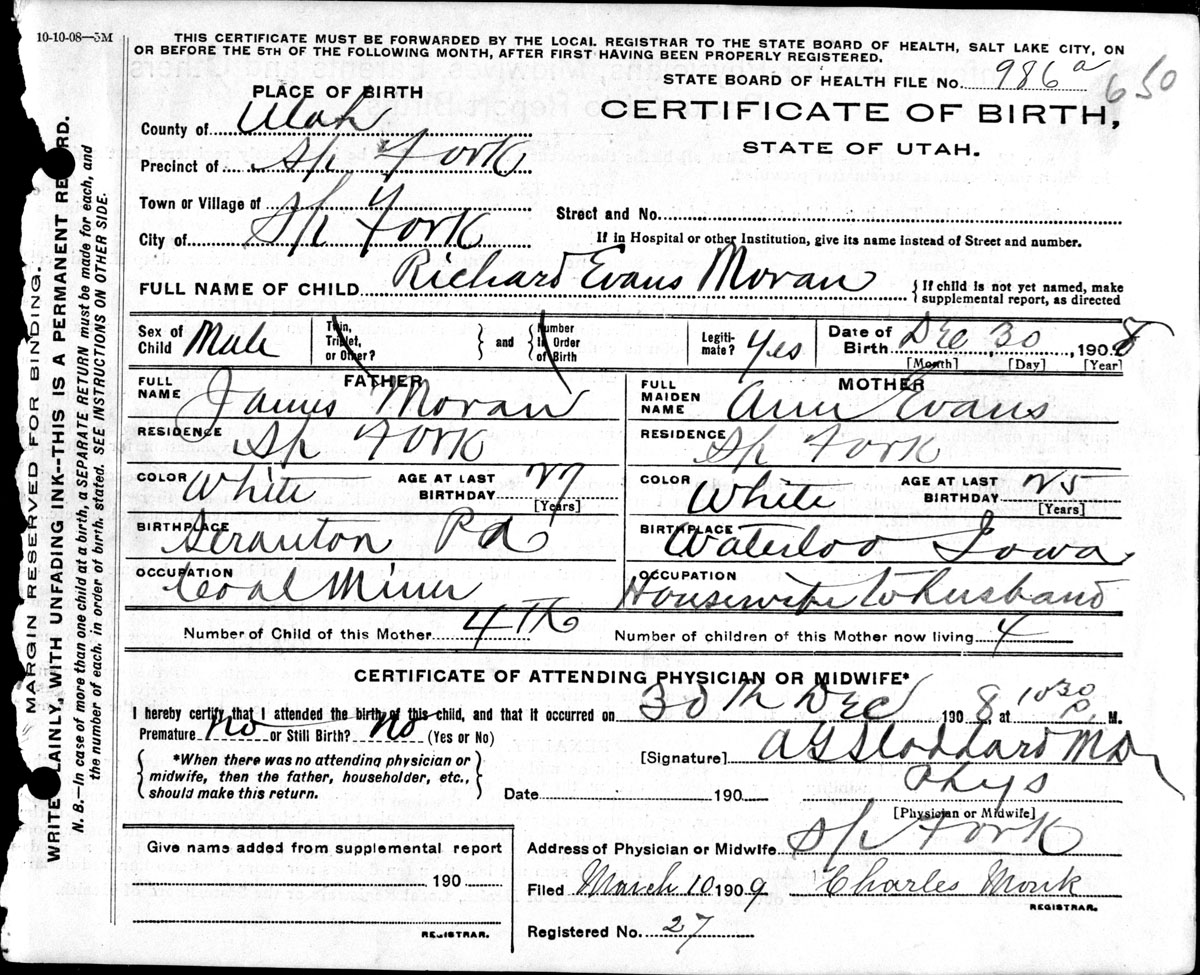 10-10-08—3M
THIS CERTIFICATE MUST BE FORWARDED BY THE LOCAL REGISTRAR TO THE STATE BOARD OF HEALTH, SALT LAKE CITY, ON
OR BEFORE THE 5TH OF THE FOLLOWING MONTH, AFTER FIRST HAVING BEEN PROPERLY REGISTERED.
STATE BOARD OF HEALTH FILE No. 986a 650
PLACE OF BIRTH
CERTIFICATE OF BIRTH,
STATE OF UTAH.
County of Utah
Precinct of Sp Fork
Town or Village of
Street and No.
City of Sp Fork
If in Hospital or other Institution, give its name instead of Street and number.
FULL NAME OF CHILD Richard Evans Moran {If child is not yet named, make
supplemental report, as directed
Sex of Child Male
Twin, Triplet, or Other?
and
Number in Order of Birth
Legiti-mate? Yes
Date of Birth Dec 30, 1908
[Month] [Day] [Year]
FATHER
FULL NAME James Moran
RESIDENCE Sp Fork
COLOR White AGE AT LAST BIRTHDAY 27 [Years]
BIRTHPLACE Scranton Pa
OCCUPATION Coal Miner
MOTHER
FULL MAIDEN NAME Ann Evans
RESIDENCE Sp Fork
COLOR White AGE AT LAST BIRTHDAY 25 [Years]
BIRTHPLACE Waterloo Iowa
OCCUPATION Housewife to husband
Number of Child of this Mother 4TH Number of children of this Mother now living 4
CERTIFICATE OF ATTENDING PHYSICIAN OR MIDWIFE*
I hereby certify that I attended the birth of this child, and that it occurred on 30th Dec 1908 at 1030 P. M.
Premature No or Still Birth? No (Yes or No)
*When there was no attending physician or
midwife, then the father, householder, etc.,
should make this return.
[Signature] A G Stoddard MD
Date 190 Phys
[Physician or Midwife]
Address of Physician or Midwife Sp Fork
Filed March 10 1909 Charles Monk
REGISTRAR.
Registered No. 27
Give name added from supplemental report
190
REGISTRAR.
MARGIN RESERVED FOR BINDING.
WRITE PLAINLY, WITH UNFADING INK--THIS IS A PERMANENT RECORD.
N. B.—In case of more than one child at a birth, a SEPARATE RETURN must be made for each, and
the number of each, in order of birth, stated. SEE INSTRUCTIONS ON OTHER SIDE.